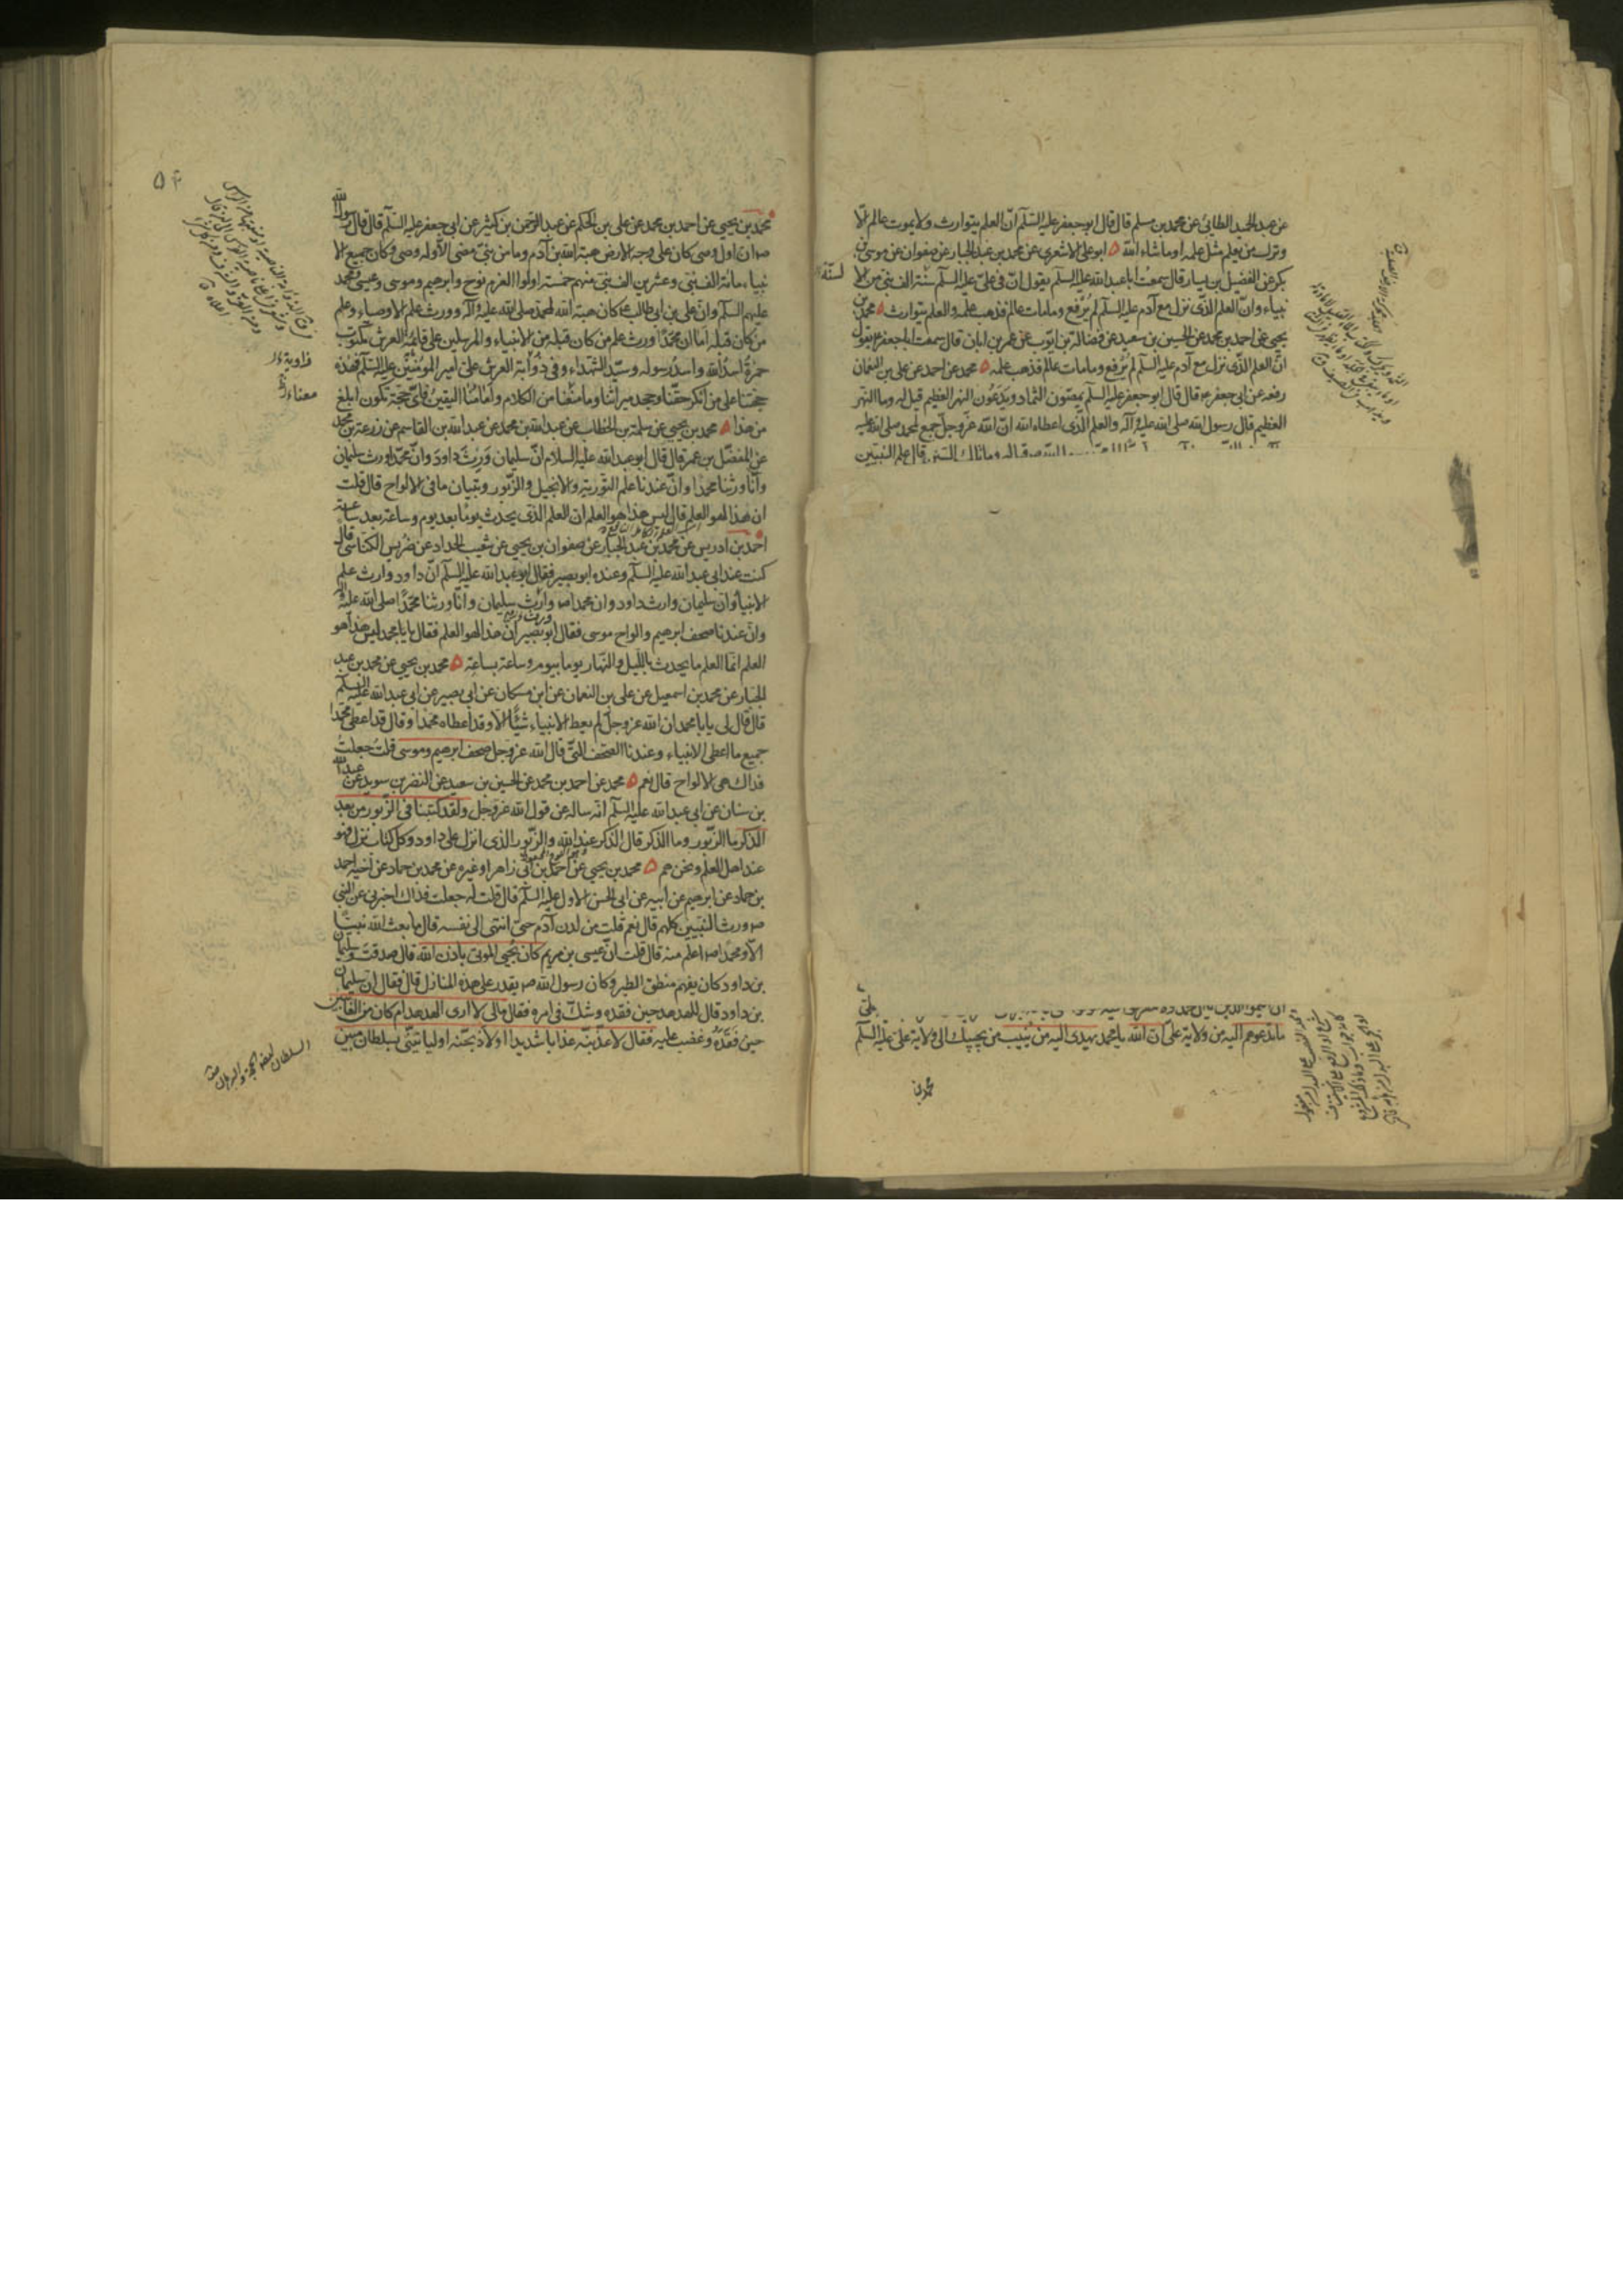 عن عبد الحميد الطائى عن محمد بن مسلم قال قال ابو جعفر عليه السلم ان العلم يتوارث ولا يموت عالم الا
وترك من يعلم مثل علمه او ما شاء الله ابو على الاشعرى عن محمد بن عبد الجبار عن صفوان عن موسى بن
بكر عن الفضيل بن يسار قال سمعت ابا عبد الله عليه السلم يقول ان فى على عليه السلم سنة الف نبى من الا
نبياء وان العلم الذى نزل مع آدم عليه السلم لم يرفع وما مات عالم فذهب علمه والعلم يتوارث محمد بن
يحيى عن احمد بن محمد عن الحسين بن سعيد عن فضالة بن ايوب عن عمر بن ابان قال سمعت ابا جعفر ع يقول
ان العلم الذى نزل مع آدم عليه السلم لم يرفع وما مات عالم فذهب علمه محمد عن احمد عن على بن النعمان
رفعه عن ابى جعفر ع قال قال ابو جعفر عليه السلم يمصون الثماد ويدعون النهر العظيم قيل له وما النهر
العظيم قال رسول الله صلى الله عليه وآله والعلم الذى اعطاه الله ان الله عز وجل جمع لمحمد صلى الله عليه
وما تلك السنن قال علم النبيين
ما تدعوهم اليه من ولاية على ان الله يا محمد يهدى اليه من ينيب من يجيبك الى ولاية على عليه السلم
محمد بن
٥٤
محمد بن يحيى عن احمد بن محمد عن على بن الحكم عن عبد الرحمن بن كثير عن ابى جعفر عليه السلم قال قال رسول الله
ص ان اول وصى كان على وجه الارض هبة الله بن آدم وما من نبى مضى الا وله وصى وكان جميع الا
نبياء مائة الف نبى وعشرين الف نبى منهم خمسة اولوا العزم نوح وابرهيم وموسى وعيسى ومحمد
عليهم السلم وان على بن ابى طالب ع كان هبة الله لمحمد صلى الله عليه وآله وورث علم الاوصياء وعلم
من كان قبله اما ان محمدا ورث علم من كان قبله من الانبياء والمرسلين على قائمة العرش مكتوب
حمزة اسد الله واسد رسوله وسيد الشهداء وفى ذؤابة العرش على امير المؤمنين عليه السلم فهذه
حجتنا على من انكر حقنا وجحد ميراثنا وما منعنا من الكلام وامامنا اليقين فاى حجة تكون ابلغ
من هذا محمد بن يحيى عن سلمة بن الخطاب عن عبد الله بن محمد عن عبد الله بن القاسم عن زرعة بن محمد
عن المفضل بن عمر قال قال ابو عبد الله عليه السلام ان سليمان ورث داود وان محمدا ورث سليمان
وانا ورثنا محمدا وان عندنا علم التورية والانجيل والزبور وتبيان ما فى الالواح قال قلت
ان هذا لهو العلم قال ليس هذا هو العلم ان العلم الذى يحدث يوما بعد يوم وساعة بعد ساعة
احمد بن ادريس عن محمد بن عبد الجبار عن صفوان بن يحيى عن شعيب الحداد عن ضريس الكناسى قال
كنت عند ابى عبد الله عليه السلم وعنده ابو بصير فقال ابو عبد الله عليه السلم ان داود وارث علم
الانبياء وان سليمان وارث داود وان محمدا ص وارث سليمان وانا ورثنا محمدا صلى الله عليه وآله
وان عندنا صحف ابرهيم والواح موسى فقال ابو بصير ان هذا لهو العلم فقال يا با محمد ليس هذا هو
العلم انما العلم ما يحدث بالليل والنهار يوما بيوم وساعة بساعة محمد بن يحيى عن محمد بن عبد
الجبار عن محمد بن اسمعيل عن على بن النعمان عن ابن مسكان عن ابى بصير عن ابى عبد الله عليه السلم
قال قال لى يا با محمد ان الله عز وجل لم يعط الانبياء شيئا الا وقد اعطاه محمدا وقال قد اعطى محمدا
جميع ما اعطى الانبياء وعندنا الصحف التى قال الله عز وجل صحف ابرهيم وموسى قلت جعلت
فداك هى الالواح قال نعم محمد عن احمد بن محمد عن الحسين بن سعيد عن النضر بن سويد عن عبد الله
بن سنان عن ابى عبد الله عليه السلم انه ساله عن قول الله عز وجل ولقد كتبنا فى الزبور من بعد
الذكر ما الزبور وما الذكر قال الذكر عند الله والزبور الذى انزل على داود وكل كتاب نزل فهو
عند اهل العلم ونحن هم محمد بن يحيى عن احمد بن ابى زاهر او غيره عن محمد بن حماد عن اخيه احمد
بن حماد عن ابرهيم عن ابيه عن ابى الحسن الاول عليه السلم قال قلت له جعلت فداك اخبرنى عن النبى
ص ورث النبيين كلهم قال نعم قلت من لدن آدم حتى انتهى الى نفسه قال ما بعث الله نبيا
الا ومحمد ص اعلم منه قال قلت ان عيسى بن مريم كان يحيى الموتى باذن الله قال صدقت وسليمان
بن داود كان يفهم منطق الطير وكان رسول الله ص يقدر على هذه المنازل قال فقال ان سليمان
بن داود قال للهدهد حين فقده وشك فى امره فقال مالى لا ارى الهدهد ام كان من الغائبين
حين فقده وغضب عليه فقال لاعذبنه عذابا شديدا او لاذبحنه او لياتينى بسلطان مبين